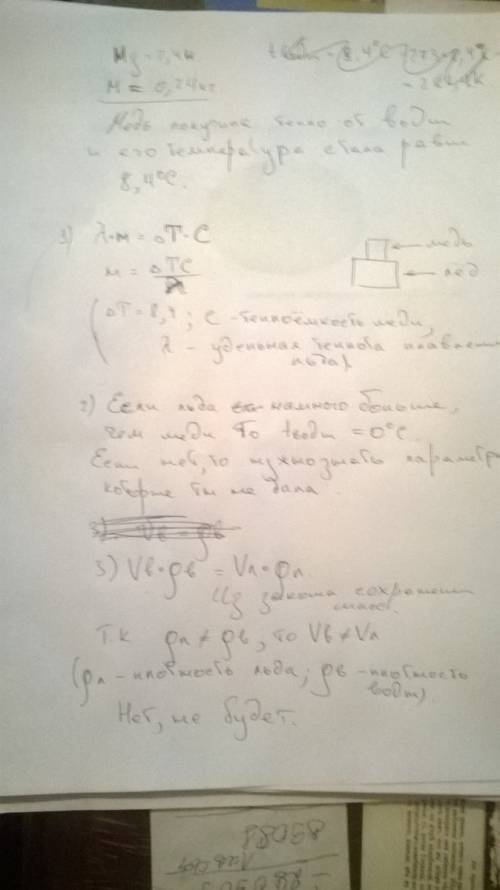 Mg = 2,4н
M = 0,24кг
Медь получила тепло от воды
и его температура стала равна
8,4°C.
1) λ·m = ΔT·C
медь
m = ΔTC/λ
лёд
(ΔT = 8,4; C - теплоёмкость меди,
λ - удельная теплота плавления
льда)
2) Если льда намного больше,
чем меди то tводы = 0°C.
Если нет, то нужно знать параметры
которые ты не дала.
3) Vв·ρв = Vл·ρл.
Из закона сохранения
масс.
ТК ρл ≠ ρв, то Vв ≠ Vл
(ρл - плотность льда; ρв - плотность
воды).
Нет, не будет.
88058